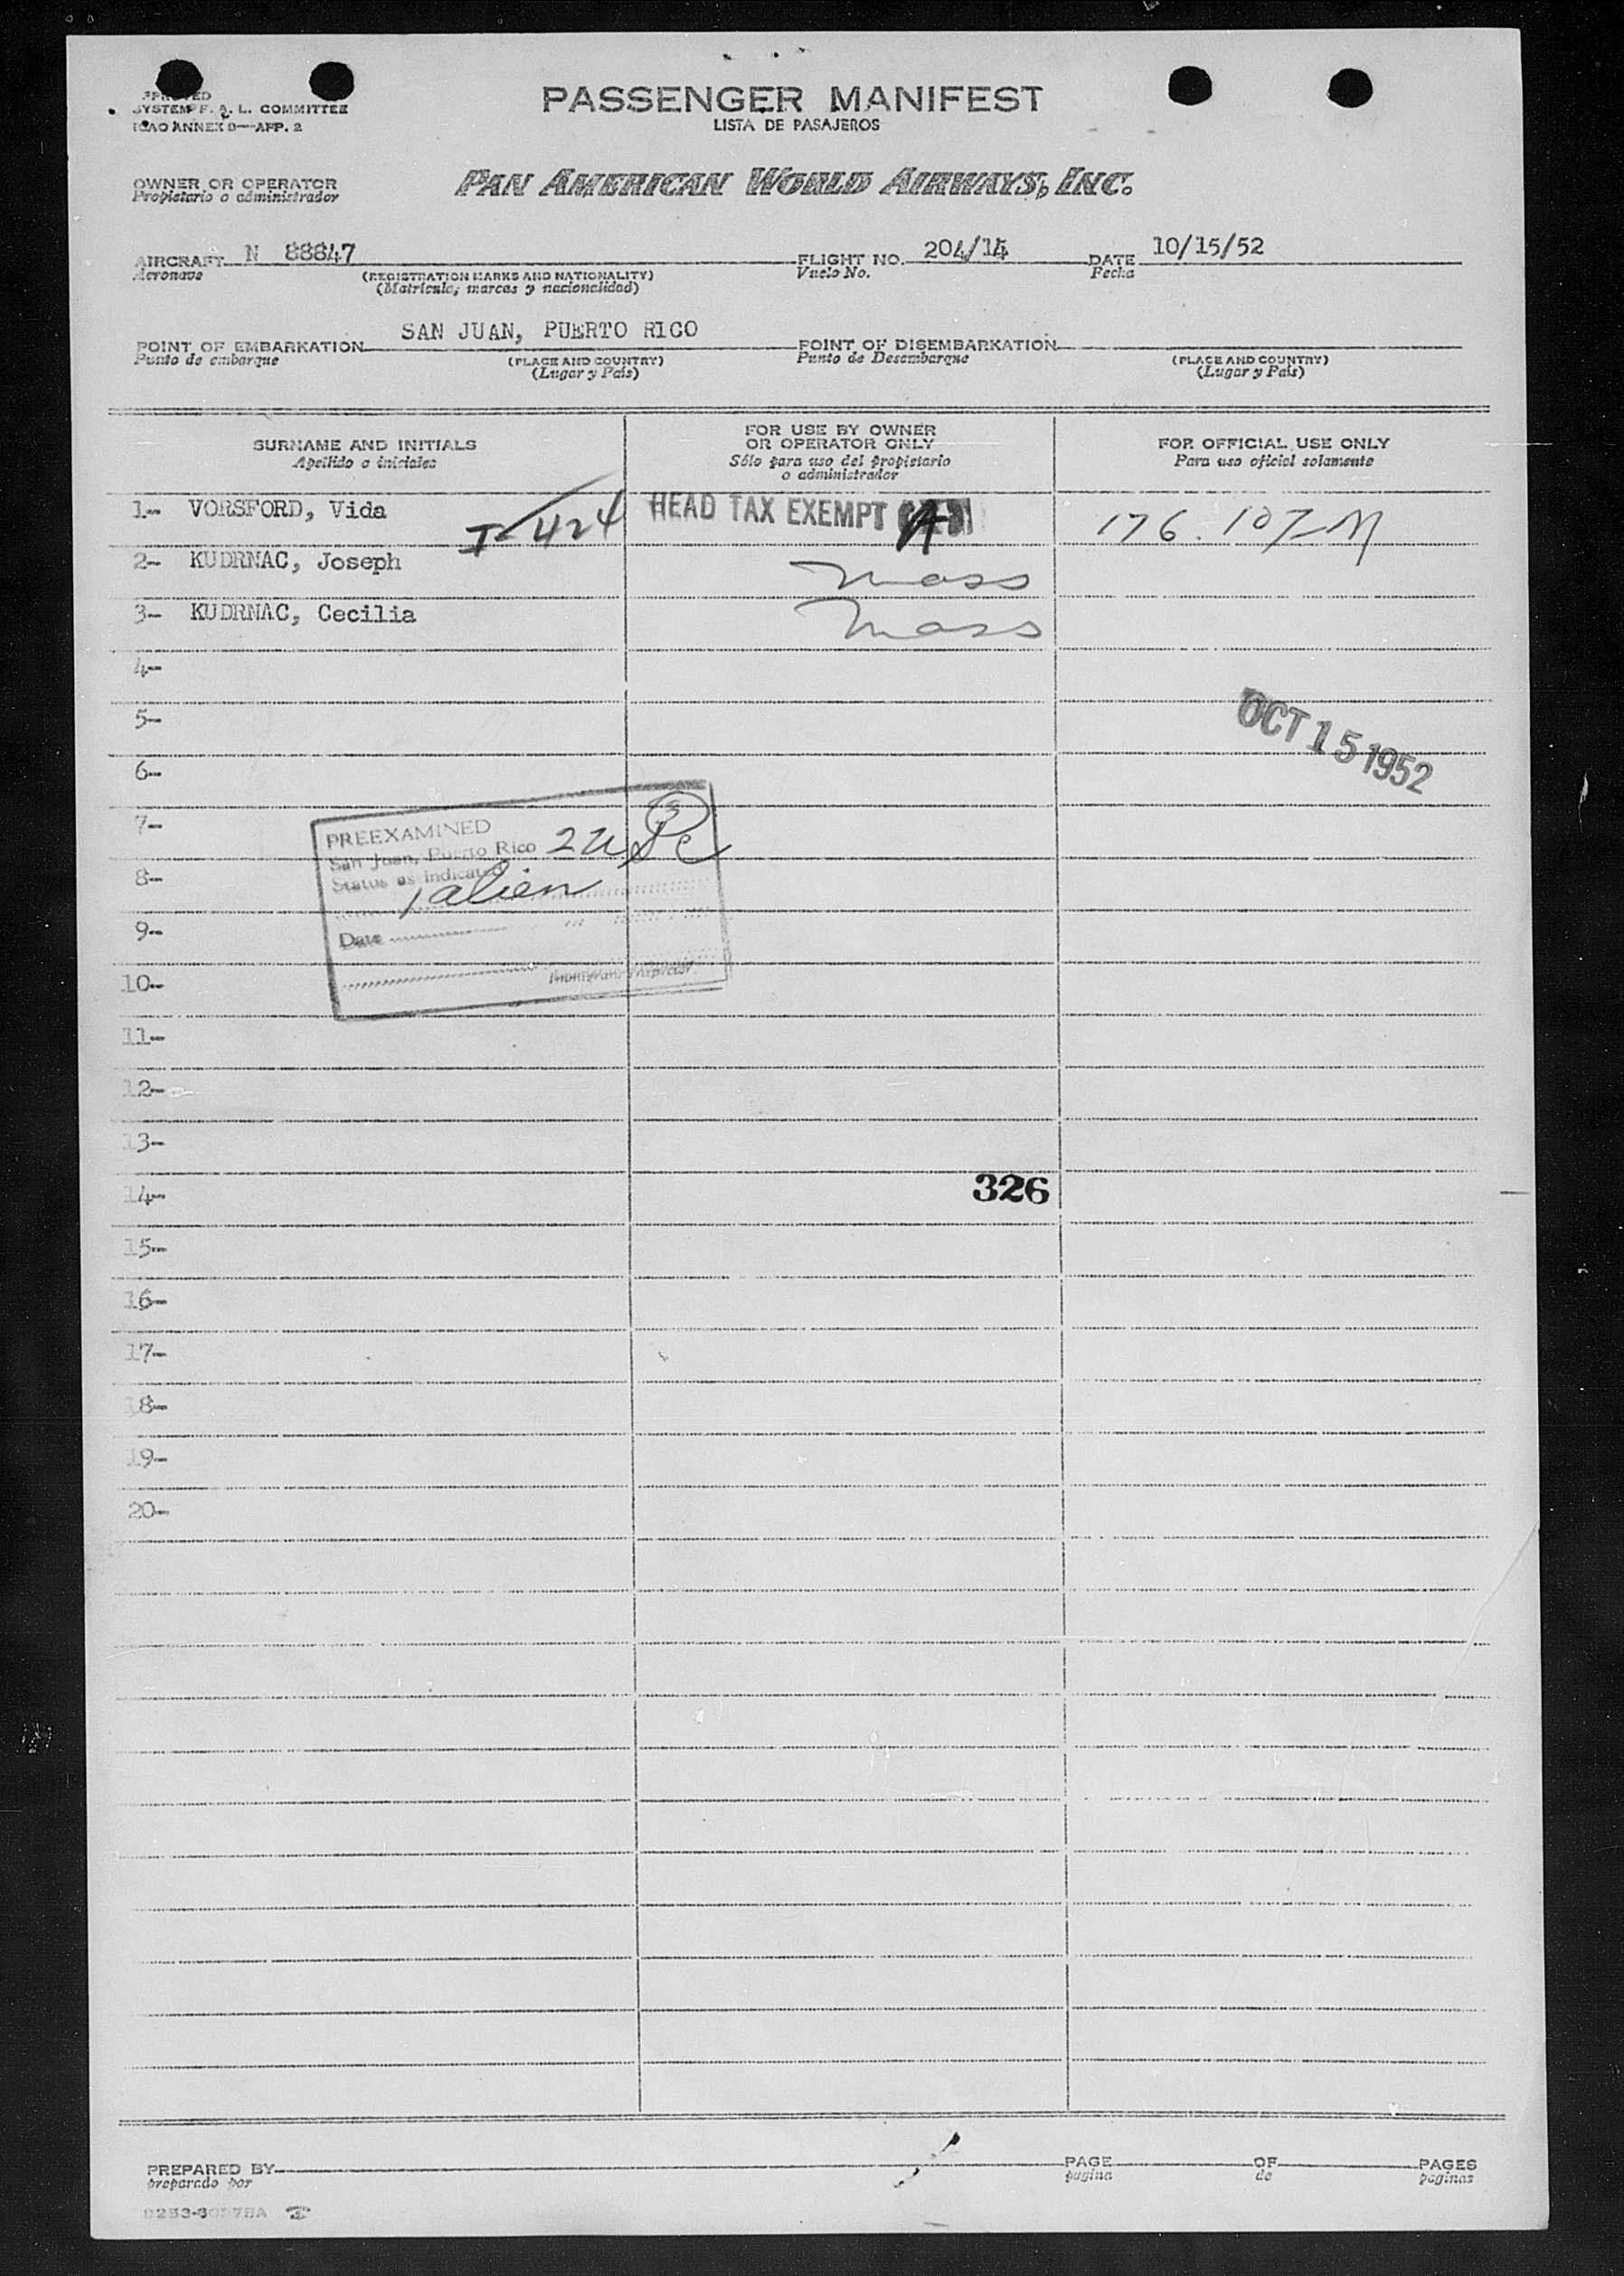 SYSTEM F. A. L. COMMITTEE
ICAO ANNEX 9—APP. 2
PASSENGER MANIFEST
LISTA DE PASAJEROS
OWNER OR OPERATOR
Propietario o administrador
PAN AMERICAN WORLD AIRWAYS, INC.
AIRCRAFT N 88847
Aeronave
(REGISTRATION MARKS AND NATIONALITY)
(Matrícula, marcas y nacionalidad)
FLIGHT NO. 204/14
Vuelo No.
DATE 10/15/52
Fecha
POINT OF EMBARKATION SAN JUAN, PUERTO RICO
Punto de embarque
(PLACE AND COUNTRY)
(Lugar y País)
POINT OF DISEMBARKATION
Punto de Desembarque
(PLACE AND COUNTRY)
(Lugar y País)
SURNAME AND INITIALS
Apellido o iniciales
FOR USE BY OWNER
OR OPERATOR ONLY
Sólo para uso del propietario
o administrador
FOR OFFICIAL USE ONLY
Para uso oficial solamente
1- VORSFORD, Vida I-424 HEAD TAX EXEMPT 176.107-M
2- KUDRNAC, Joseph Mass
3- KUDRNAC, Cecilia Mass
4-
5-
OCT 15 1952
6-
7-
PREEXAMINED
San Juan, Puerto Rico 2 U
8-
Status as indicated
1 alien
9-
Date
10-
11-
12-
13-
14- 326
15-
16-
17-
18-
19-
20-
PREPARED BY
preparado por
PAGE OF PAGES
pagina de paginas